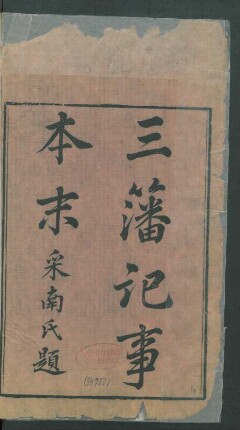 三藩記事
本末
采南氏題